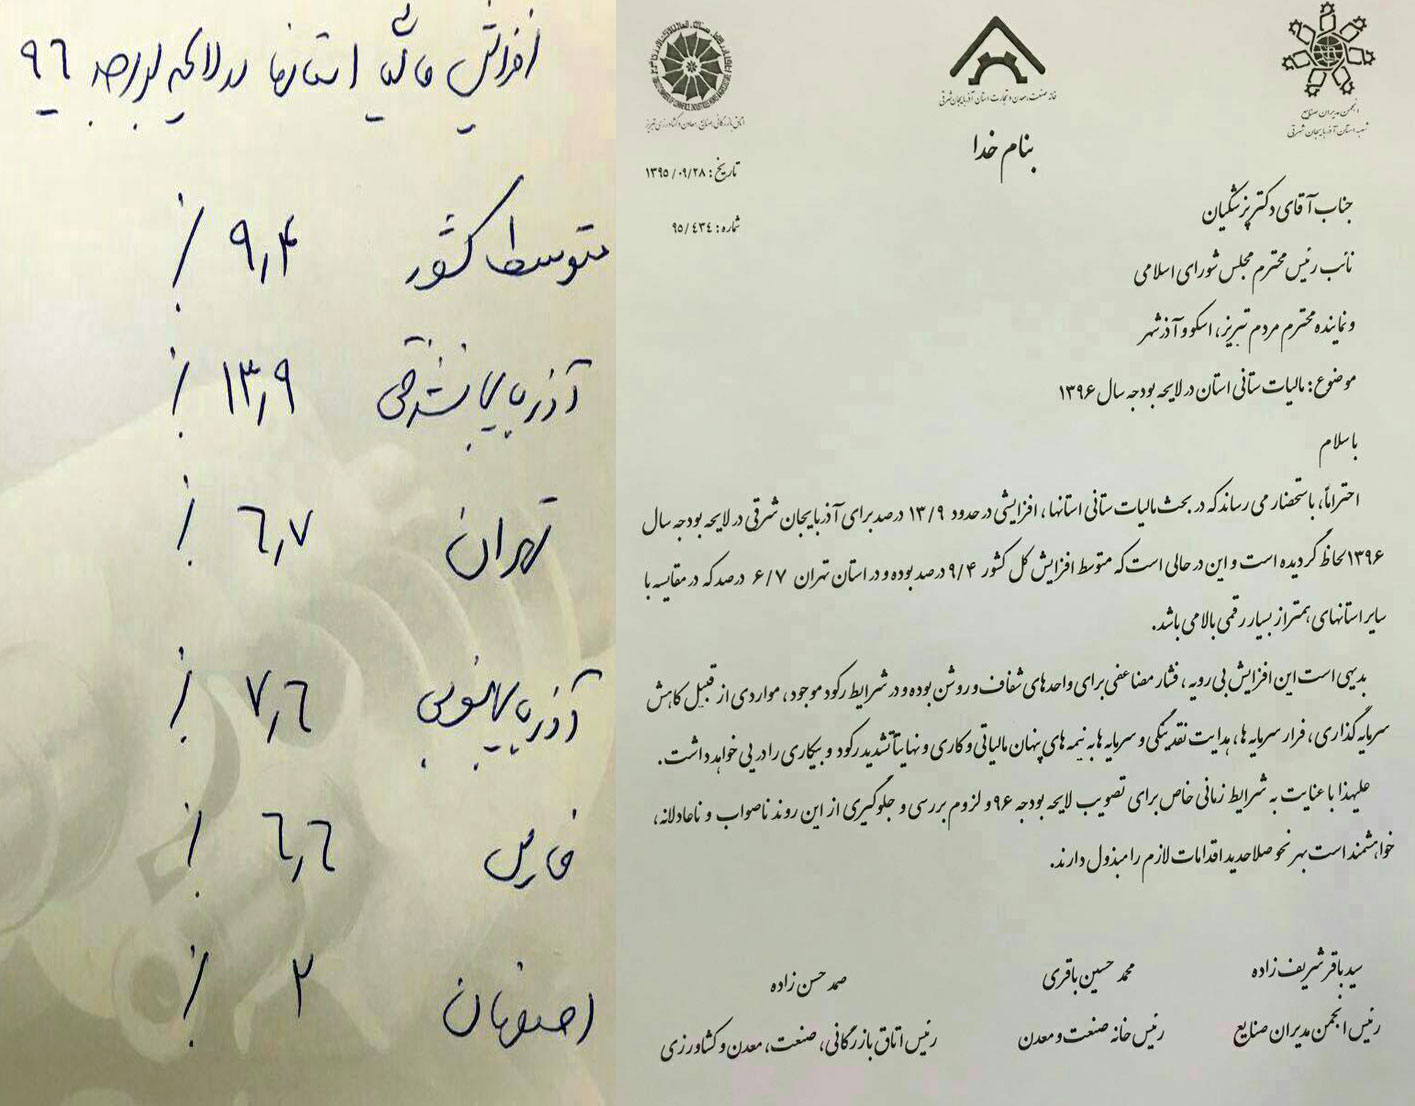 افزایش مالیات استانها در لایحه بودجه ۹٦
متوسط کشور ۹٫۴ ٪
آذربایجانشرقی ۱۳٫۹ ٪
تهران ٦٫۷ ٪
آذربایجانغربی ۷٫٦ ٪
فارس ٦٫٦ ٪
اصفهان ۲ ٪
اتاق بازرگانی، صنایع، معادن و کشاورزی تبریز
خانه صنعت، معدن و تجارت استان آذربایجان شرقی
انجمن مدیران صنایع
شعبه استان آذربایجان شرقی
بنام خدا
تاریخ: ۱۳۹۵/۰۹/۲۸
شماره: ۹۵/٤۳٤
جناب آقای دکتر پزشکیان
نائب رئیس محترم مجلس شورای اسلامی
و نماینده محترم مردم تبریز، اسکو و آذرشهر
موضوع: مالیات ستانی استان در لایحه بودجه سال ۱۳۹۶
با سلام
احتراماً، باستحضار می رساند که در بحث مالیات ستانی استانها، افزایشی در حدود ۱۳/۹ درصد برای آذربایجان شرقی در لایحه بودجه سال
۱۳۹۶ لحاظ گردیده است و این در حالی است که متوسط افزایش کل کشور ۹/۴ درصد بوده و در استان تهران ۶/۷ درصد که در مقایسه با
سایر استانهای همتراز بسیار رقمی بالا می باشد.
بدیهی است این افزایش بی رویه، فشار مضاعفی برای واحدهای شفاف و روشن بوده و در شرایط رکود موجود، مواردی از قبیل کاهش
سرمایه گذاری، فرار سرمایه ها، هدایت نقدینگی و سرمایه ها به نیمه های پنهان مالیاتی و کاری و نهایتاً تشدید رکود و بیکاری را در پی خواهد داشت.
علیهذا با عنایت به شرایط زمانی خاص برای تصویب لایحه بودجه ۹۶ و لزوم بررسی و جلوگیری از این روند ناصواب و ناعادلانه،
خواهشمند است بهر نحو صلاحدید اقدامات لازم را مبذول دارند.
سید باقر شریف زاده
رئیس انجمن مدیران صنایع
محمد حسین باقری
رئیس خانه صنعت و معدن
صمد حسن زاده
رئیس اتاق بازرگانی، صنعت، معدن و کشاورزی